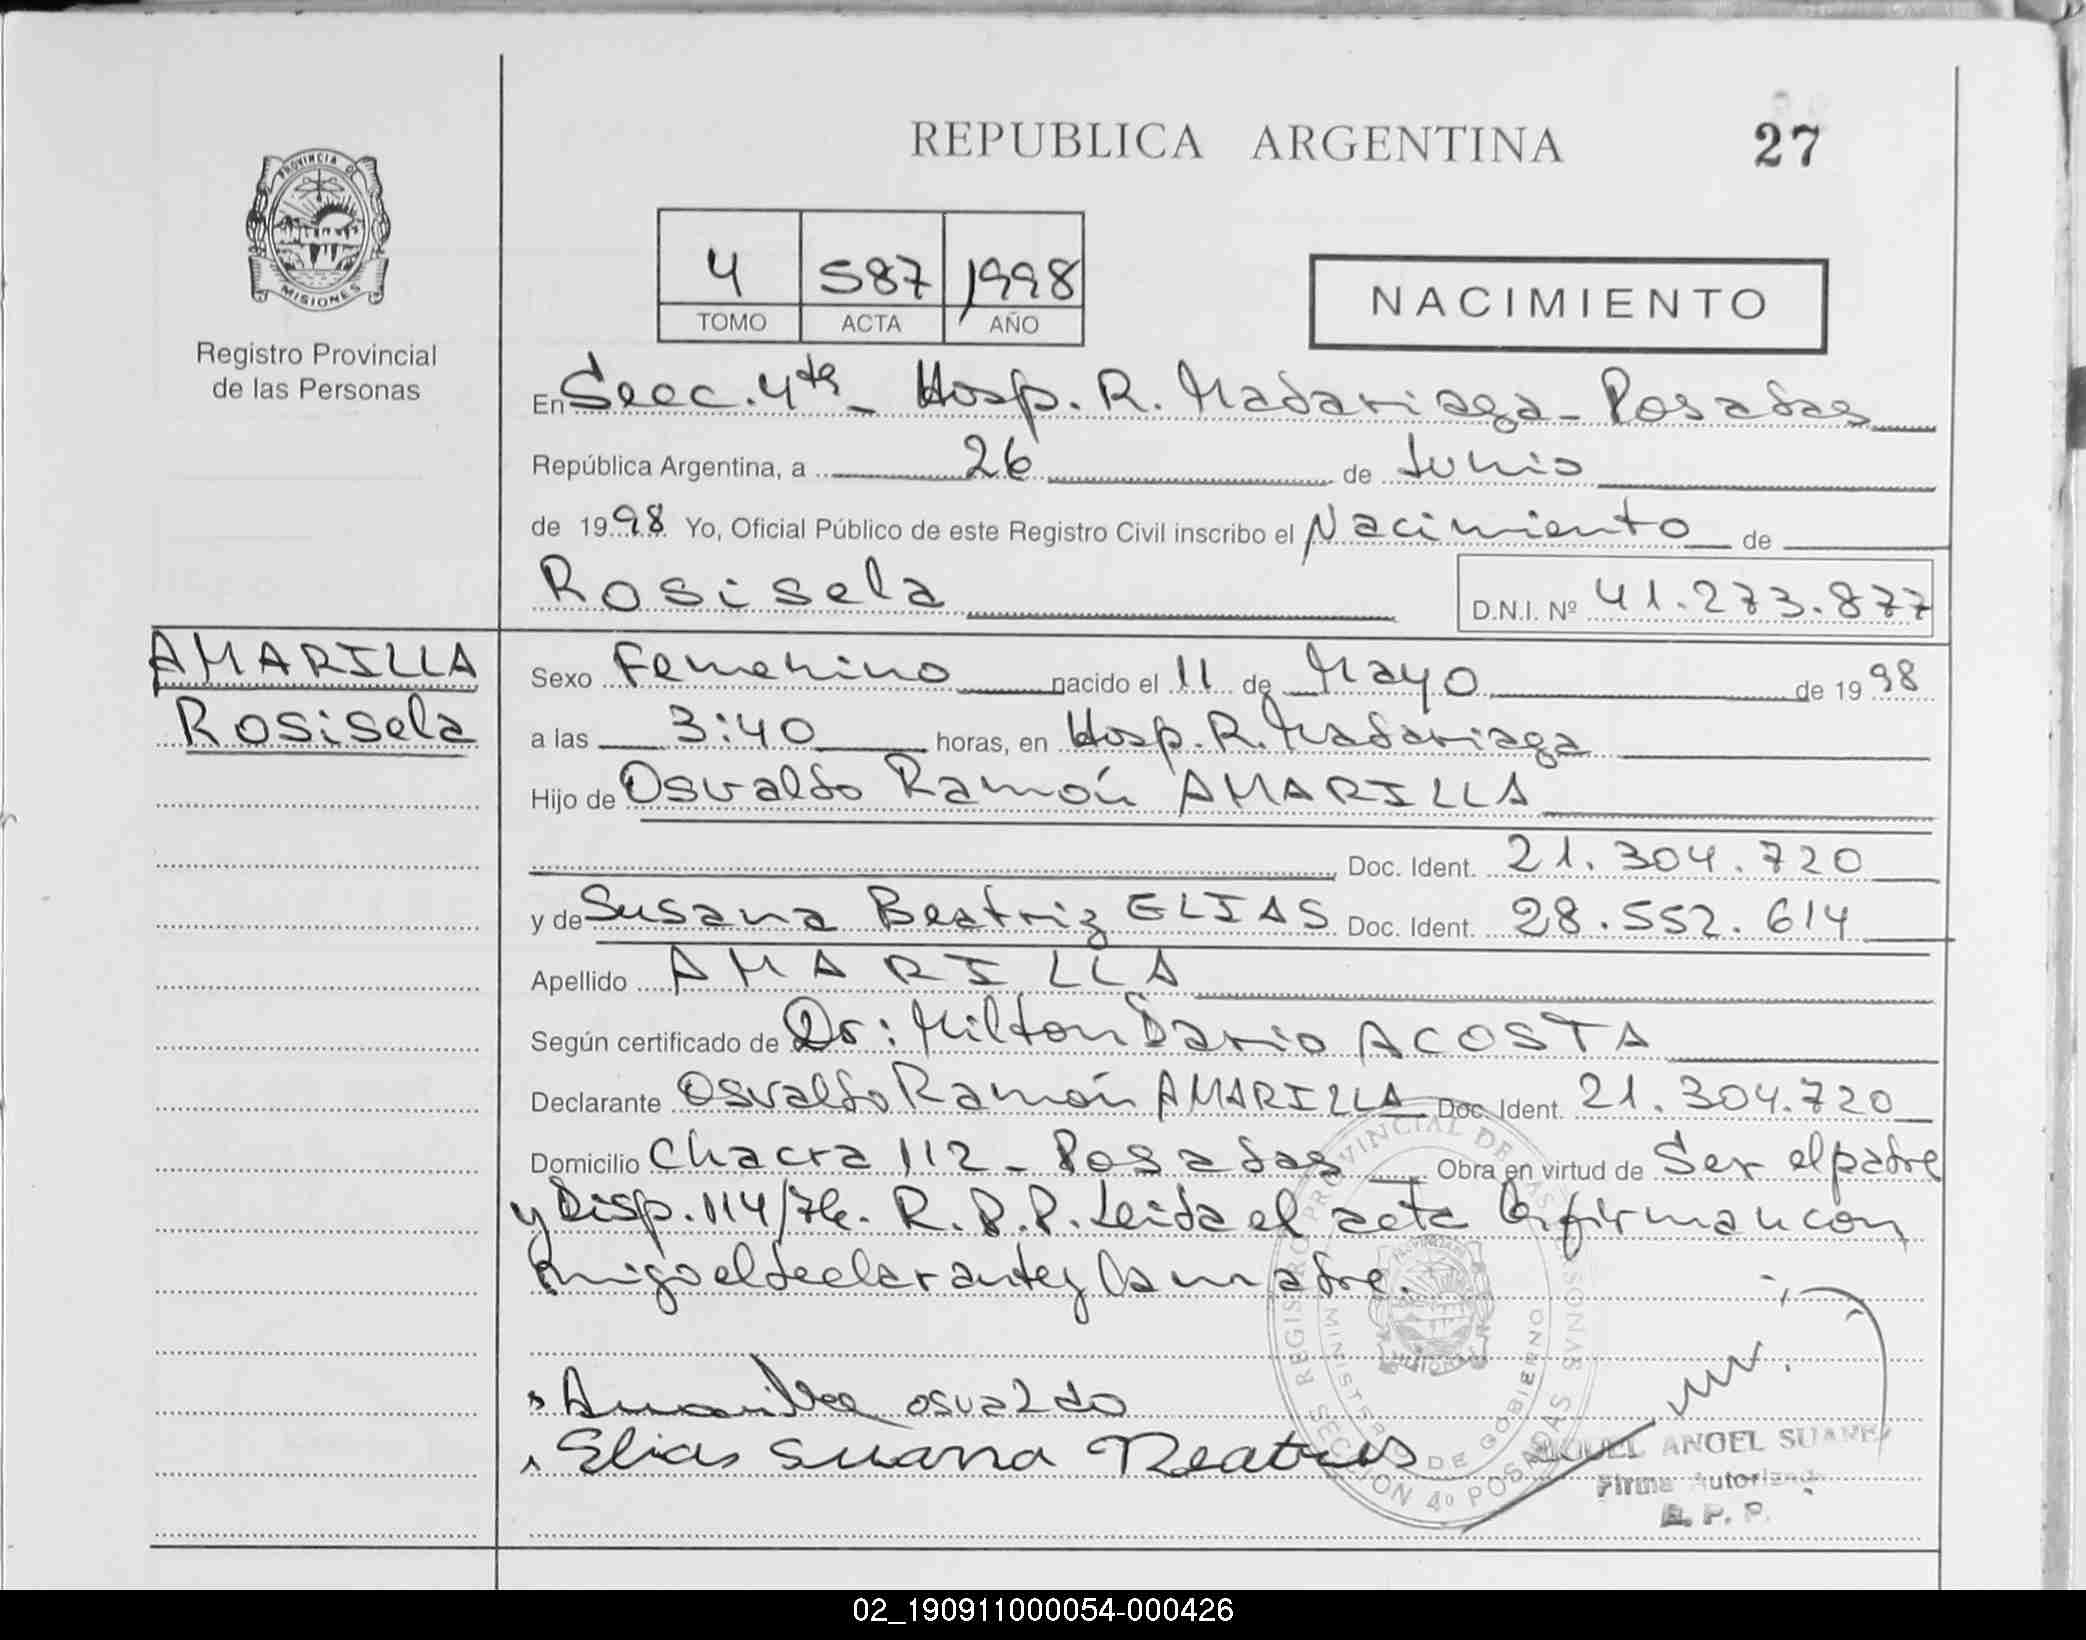 REPUBLICA ARGENTINA
27
PROVINCIA DE
MISIONES
Registro Provincial
de las Personas
4 587 1998
TOMO ACTA AÑO
NACIMIENTO
En Secc. 4ta - Hosp. R. Madariaga - Posadas
República Argentina, a 26 de Junio
de 1998 Yo, Oficial Público de este Registro Civil inscribo el Nacimiento de
Rosisela D.N.I. Nº 41.273.877
AMARILLA
Rosisela
Sexo Femenino nacido el 11 de Mayo de 1998
a las 3:40 horas, en Hosp. R. Madariaga
Hijo de Osvaldo Ramón AMARILLA
Doc. Ident. 21.304.720
y de Susana Beatriz ELIAS Doc. Ident. 28.552.614
Apellido AMARILLA
Según certificado de Dr: Milton Dario ACOSTA
Declarante Osvaldo Ramón AMARILLA Doc. Ident. 21.304.720
Domicilio Chacra 112 - Posadas Obra en virtud de Ser el padre
y Disp. 114/76. R.P.P. Leida el acta la firman con
migo el declarante y la madre.
Amarilla osvaldo
Elias suana Beatris
REGISTRO PROVINCIAL DE LAS PERSONAS
MINISTERIO DE GOBIERNO
SECCION 4º POSADAS
MIGUEL ANGEL SUAREZ
Firma Autorizada
R. P. P.
02_190911000054-000426